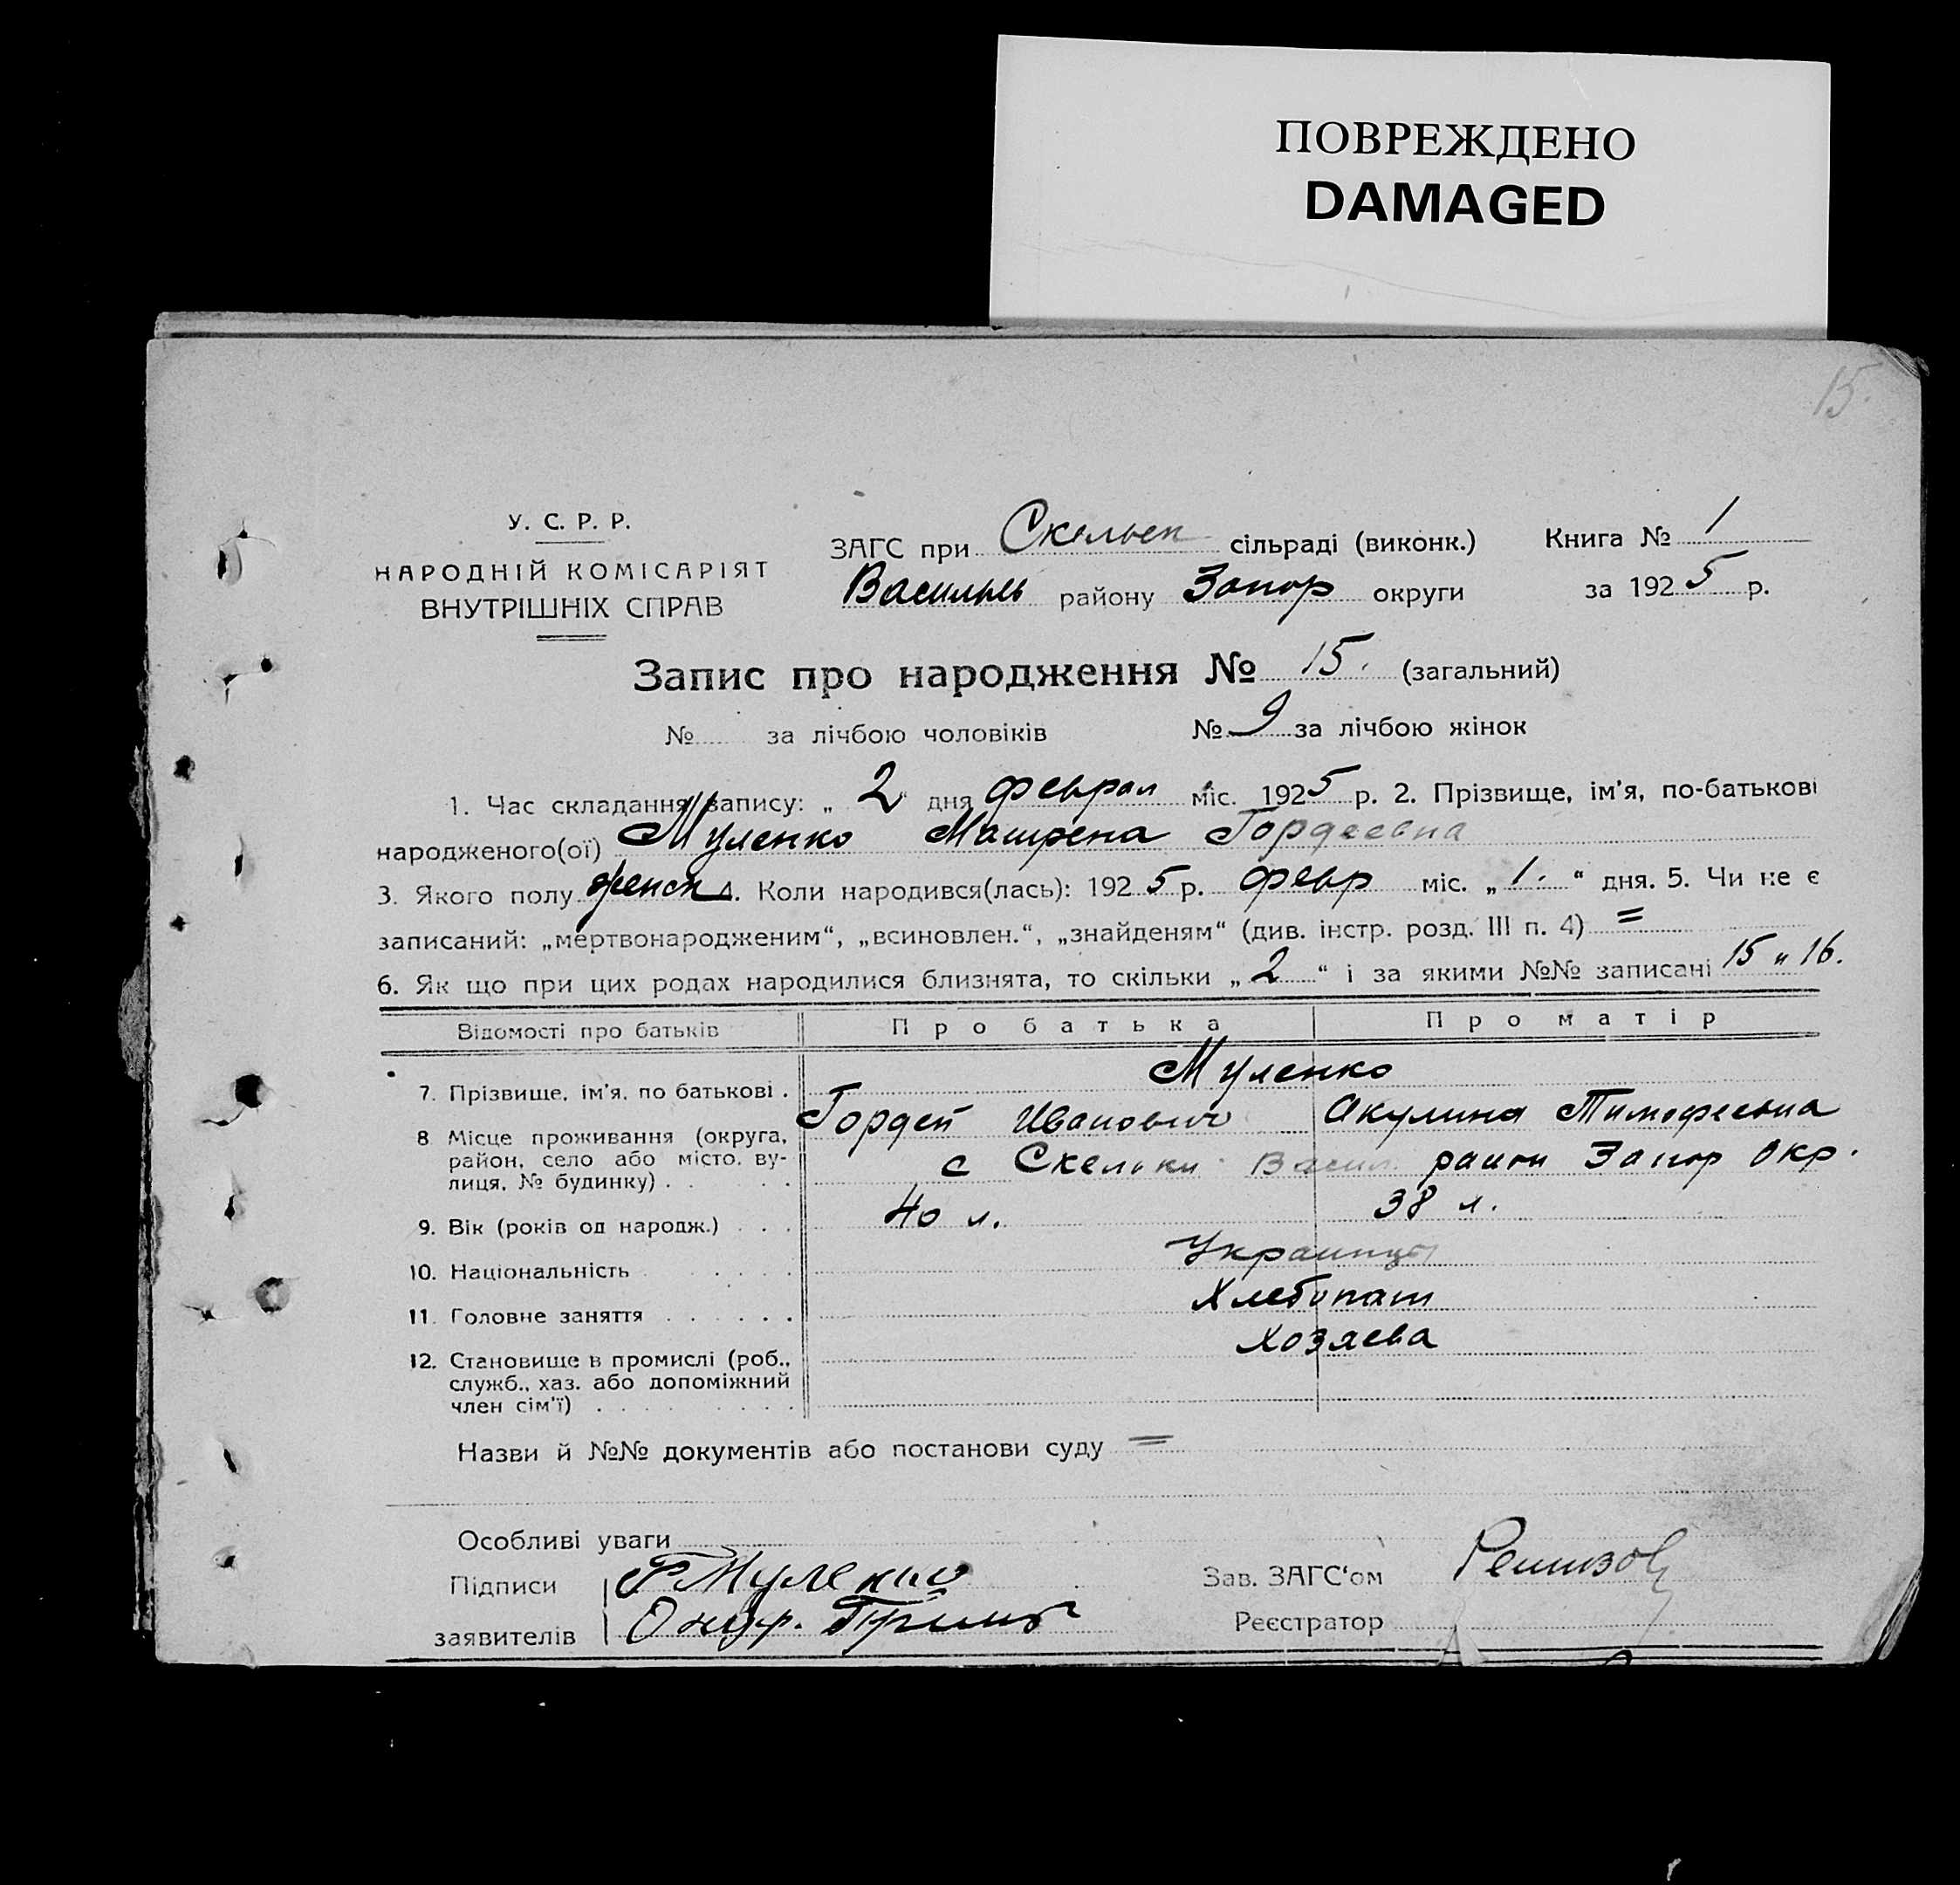 ПОВРЕЖДЕНО
DAMAGED
15.
У. С. Р. Р.
НАРОДНІЙ КОМІСАРІЯТ
ВНУТРІШНІХ СПРАВ
ЗАГС при Скельск сільраді (виконк.) Книга № 1
Васильев району Запор округи за 1925 р.
Запис про народження № 15. (загальний)
№ за лічбою чоловіків № 9 за лічбою жінок
1. Час складання запису: „ 2 “ дня феврал міс. 1925 р. 2. Прізвище, ім'я, по-батькові
народженого(ої) Муленко Матрена Гордеевна
3. Якого полу женск 4. Коли народився(лась): 1925 р. февр міс. „ 1. “ дня. 5. Чи не є
записаний: „мертвонародженим“, „всиновлен.“, „знайденям“ (див. інстр. розд. III п. 4) =
6. Як що при цих родах народилися близнята, то скільки „ 2 “ і за якими №№ записані 15 и 16.
Відомості про батьків Про батька Про матір
7. Прізвище, ім'я, по батькові . Муленко
Гордей Иванович Акулина Тимофеевна
8 Місце проживання (округа, район, село або місто, вулиця, № будинку) . . . . с Скельки Васил. район Запор Окр.
9. Вік (років од народж.) . . . 40 л. 38 л.
10. Національність . . . . Украинцы
11. Головне заняття . . . . . . Хлебопаш
12. Становище в промислі (роб., служб., хаз. або допоміжний член сім'ї) . . . . . . . . . Хозяева
Назви й №№ документів або постанови суду =
Особливі уваги
Підписи Муленко Зав. ЗАГС'ом
заявителів Реєстратор